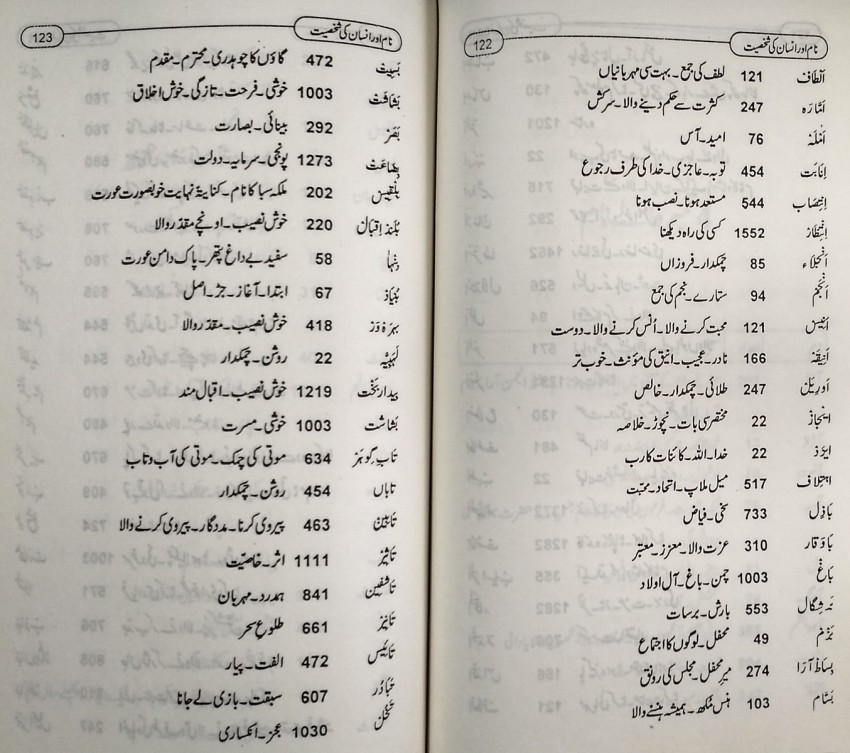 نام اور انسان کی شخصیت 122
الطاف 121 لطف کی جمع۔ بہت سی مہربانیاں
امّارہ 247 کثرت سے حکم دینے والا۔ سرکش
76 امید۔ آس
انابت 454 توبہ۔ عاجزی۔ خدا کی طرف رجوع
انتصاب 544 مستعد ہونا۔ نصب ہونا
انتظار 1552 کسی کی راہ دیکھنا
انجلاء 85 چمکدار۔ فروزاں
انجم 94 ستارے۔ نجم کی جمع
انیس 121 محبت کرنے والا۔ اُنس کرنے والا۔ دوست
انیقہ 166 نادر۔ عجیب۔ انیق کی مؤنث۔ خوب تر
247 طلائی۔ چمکدار۔ خالص
ایجاز 22 مختصر سی بات۔ نچوڑ۔ خلاصہ
ایزد 22 خدا۔ اللہ۔ کائنات کا رب
ایتلاف 517 میل ملاپ۔ اتحاد۔ محبت
باذل 733 سخی۔ فیاض
باوقار 310 عزت والا۔ معزز۔ معتبر
باغ 1003 چمن۔ باغ۔ آل اولاد
برشگال 553 بارش۔ برسات
بزم 49 محفل۔ لوگوں کا اجتماع
بساط آرا 274 میر محفل۔ مجلس کی رونق
بسّام 103 ہنس مکھ۔ ہمیشہ ہنسنے والا
نام اور انسان کی شخصیت 123
472 گاؤں کا چوہدری۔ محترم۔ مقدم
بشاشت 1003 خوشی۔ فرحت۔ تازگی۔ خوش اخلاق
بصر 292 بینائی۔ بصارت
بضاعت 1273 پونجی۔ سرمایہ۔ دولت
بلقیس 202 ملکہ سبا کا نام۔ کنایتہً نہایت خوبصورت عورت
بلند اقبال 220 خوش نصیب۔ اونچے مقدر والا
58 سفید بے داغ پتھر۔ پاک دامن عورت
بنیاد 67 ابتدا۔ آغاز۔ جڑ۔ اصل
بہرہ ور 418 خوش نصیب۔ مقدر والا
22 روشن۔ چمکدار
بیدار بخت 1219 خوش نصیب۔ اقبال مند
بشاشت 1003 خوشی۔ مسرت
تاب گوہر 634 موتی کی چمک۔ موتی کی آب و تاب
تاباں 454 روشن۔ چمکدار
تابعین 463 پیروی کرنا۔ مددگار۔ پیروی کرنے والا
تاثیر 1111 اثر۔ خاصیّت
تاشفین 841 ہمدرد۔ مہربان
661 طلوع سحر
472 الفت۔ پیار
تبادر 607 سبقت۔ بازی لے جانا
1030 عجز۔ انکساری